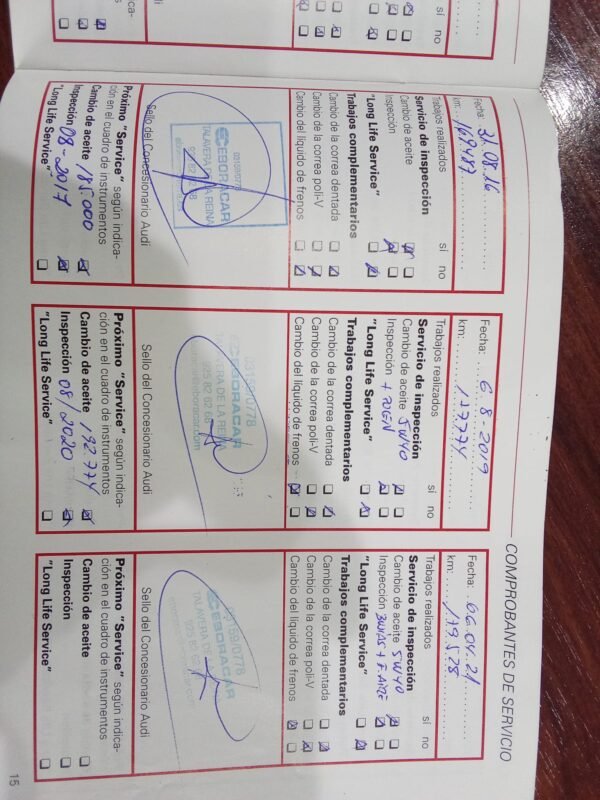 COMPROBANTES DE SERVICIO
sí no
Fecha: 31.08.16
km: 169.487
Trabajos realizados sí no
Servicio de inspección
Cambio de aceite
Inspección
"Long Life Service"
Trabajos complementarios
Cambio de la correa dentada
Cambio de la correa poli-V
Cambio del líquido de frenos
CEBORACAR
TALAVERA DE LA REINA
Sello del Concesionario Audi
Próximo "Service" según indica-
ción en el cuadro de instrumentos
Cambio de aceite 185000
Inspección 08-2017
"Long Life Service"
Fecha: 6-8-2019
km: 177.774
Trabajos realizados sí no
Servicio de inspección
Cambio de aceite 5W40
Inspección + POLEN
"Long Life Service"
Trabajos complementarios
Cambio de la correa dentada
Cambio de la correa poli-V
Cambio del líquido de frenos
03159/0778
CEBORACAR
925 82 02 68
Sello del Concesionario Audi
Próximo "Service" según indica-
ción en el cuadro de instrumentos
Cambio de aceite 192.774
Inspección 08/2020
"Long Life Service"
Fecha: 06.04.21
km: 179.578
Trabajos realizados sí no
Servicio de inspección
Cambio de aceite 5W40
Inspección
"Long Life Service"
Trabajos complementarios
Cambio de la correa dentada
Cambio de la correa poli-V
Cambio del líquido de frenos
CEBORACAR
TALAVERA DE
Sello del Concesionario Audi
Próximo "Service" según indica-
ción en el cuadro de instrumentos
Cambio de aceite
Inspección
"Long Life Service"
15